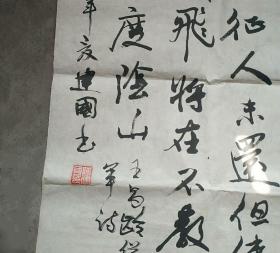 征人未還但使
飛將在不教
度陰山王昌齡從
軍詩
年夏建國书